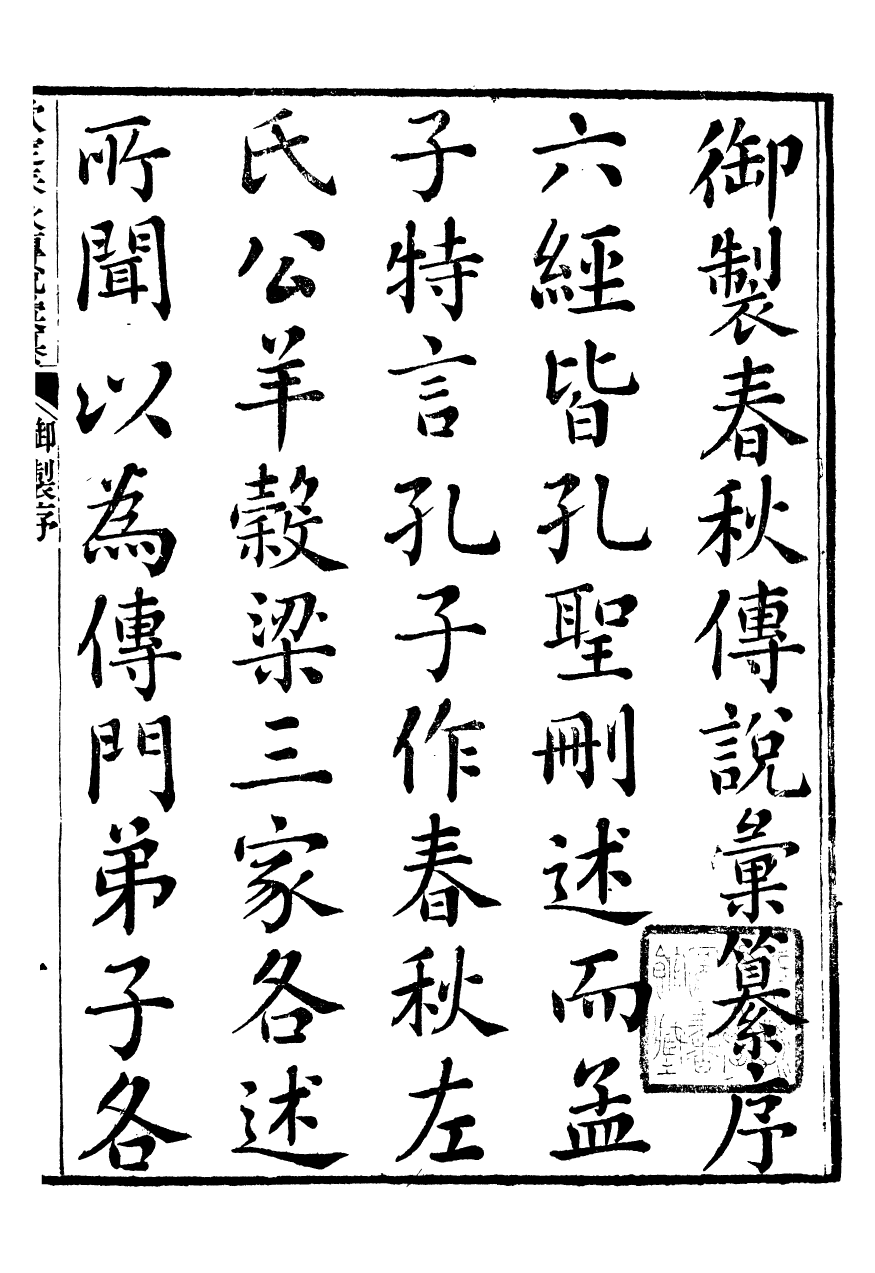 御製春秋傳說彙纂序
六經皆孔聖刪述而孟
子特言孔子作春秋左
氏公羊穀梁三家各述
所聞以為傳門弟子各
御製序